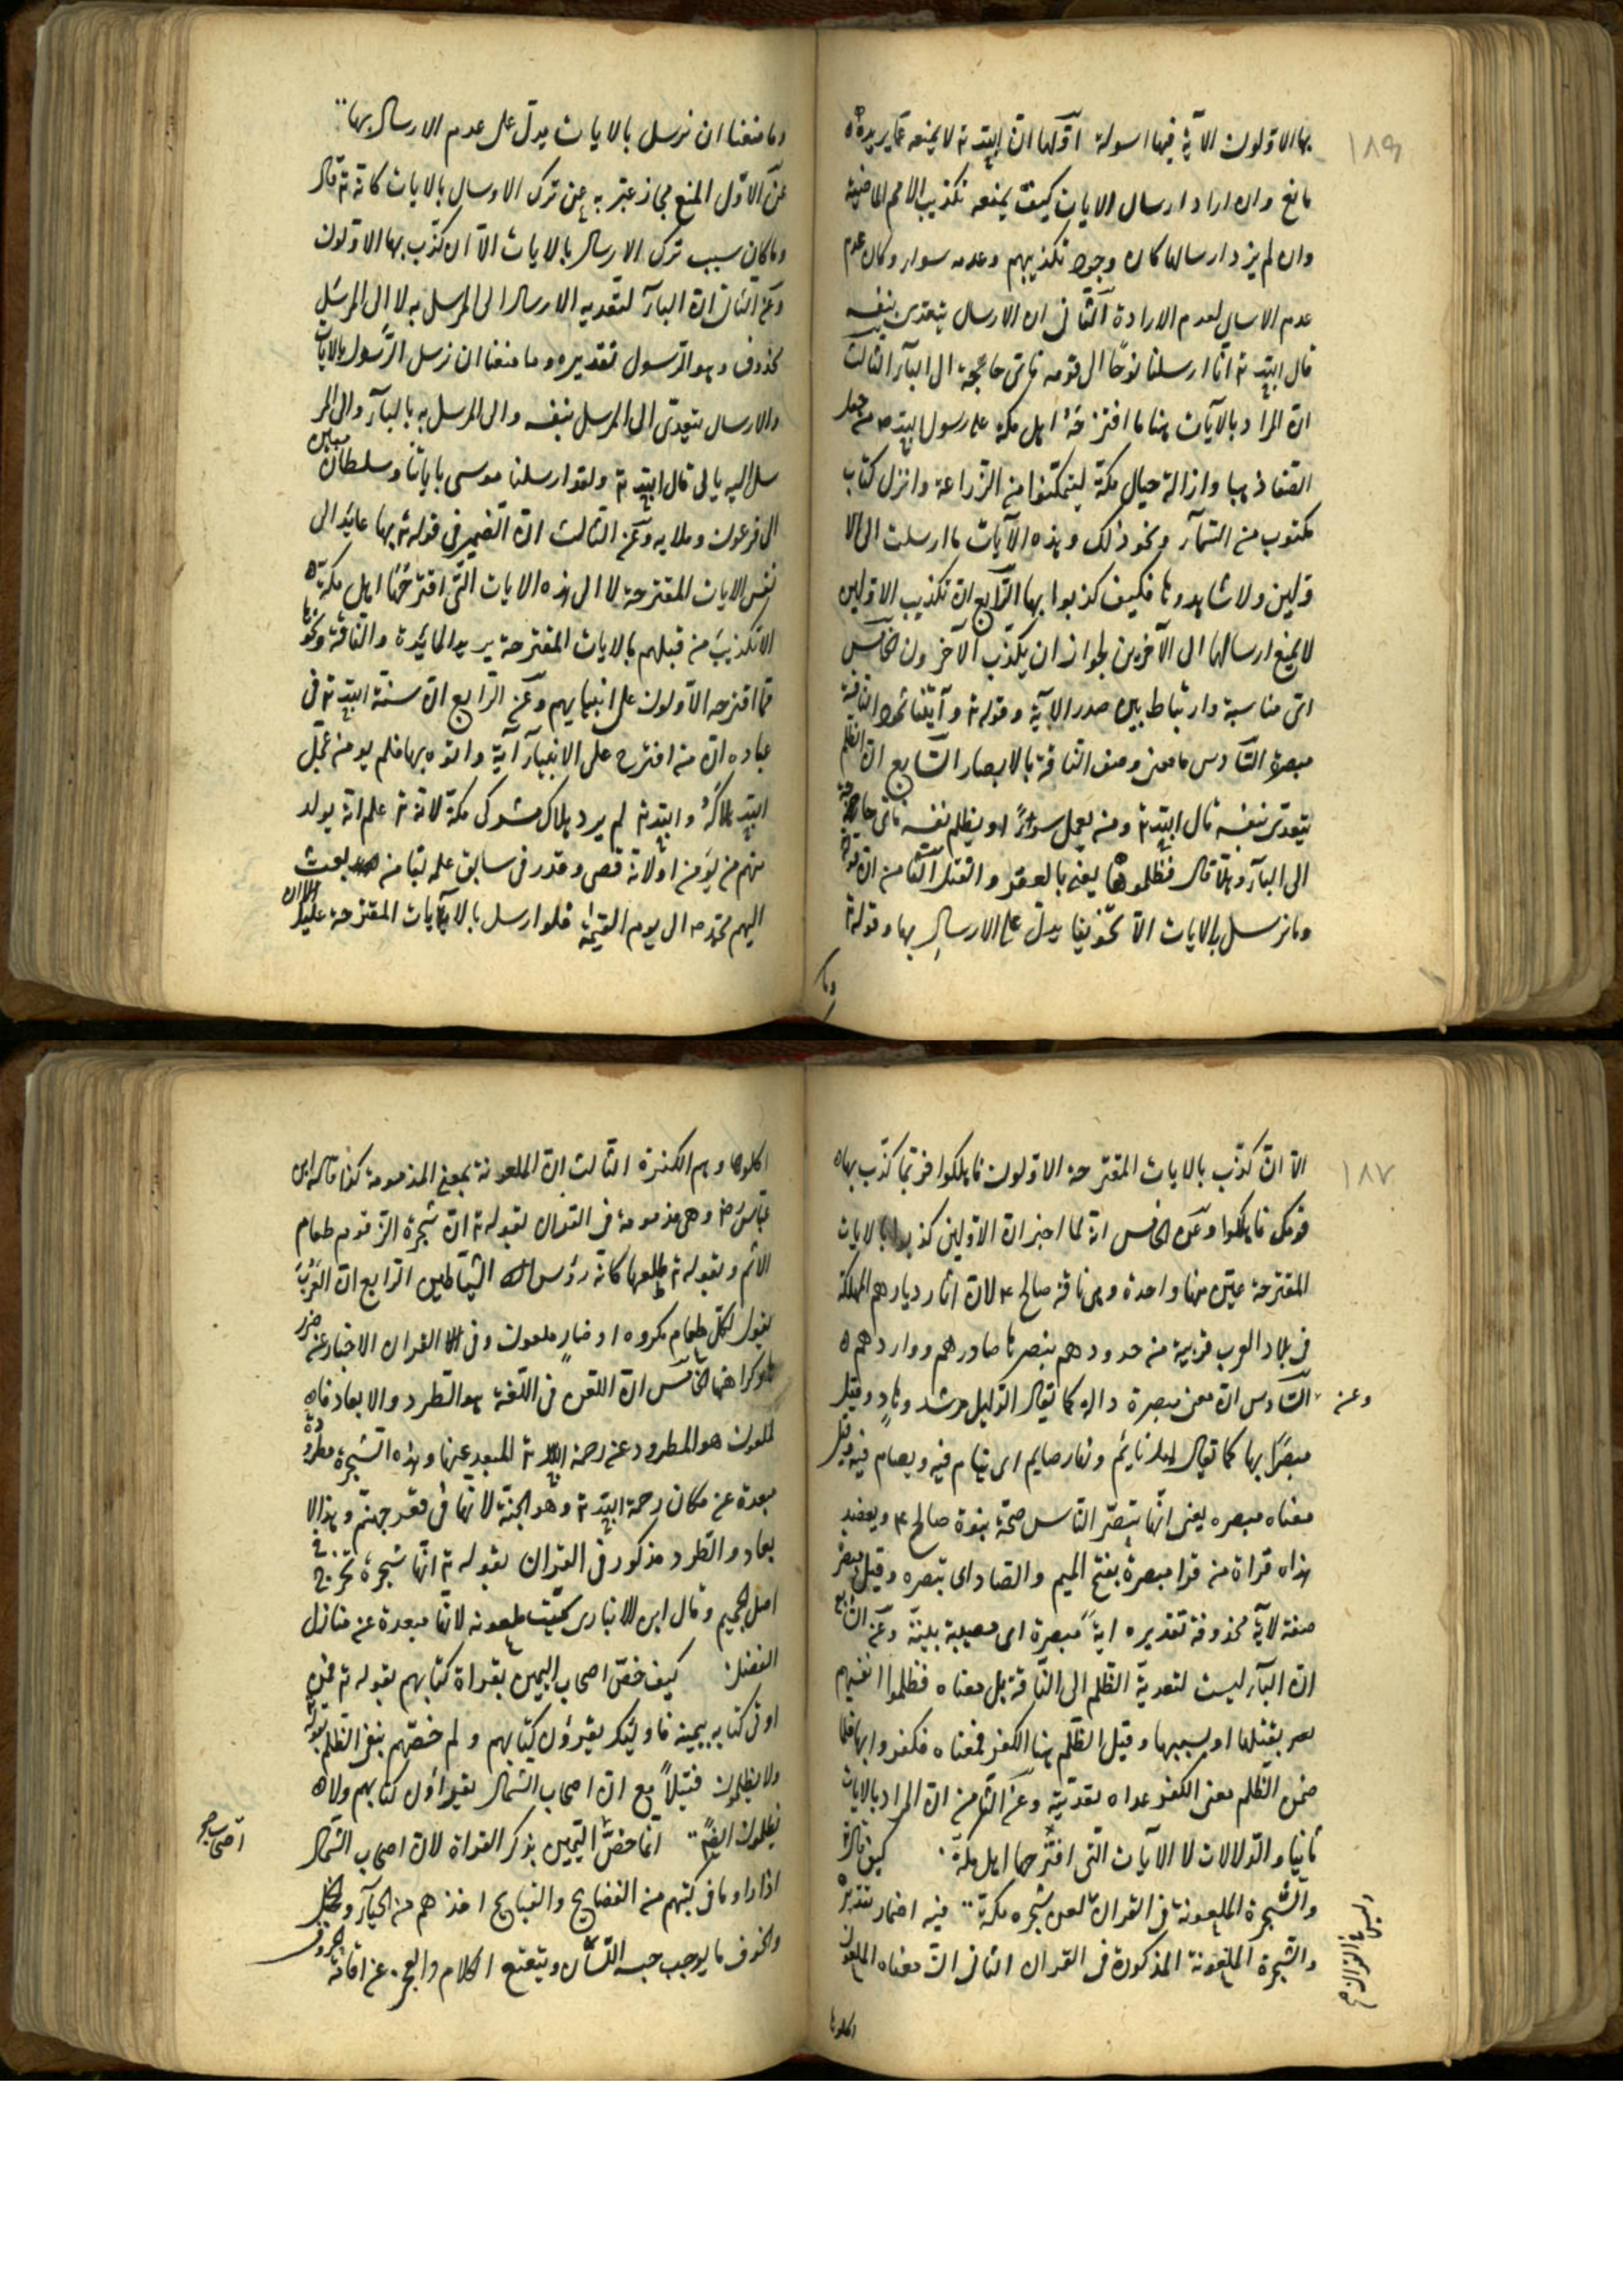 ١٨٩
بها الاولون الآية فيها اسولة اوّلها انّ الله تع لا يمنعه عمّا يريده
مانع وان اراد ارسال الايات كيف يمنعه تكذيب الامم الماضية
وان لم يرد ارسالها كان وجود تكذيبهم وعدمه سواء وكان عدم
عدم الارسال لعدم الارادة الثّانى ان الارسال يتعدى بنفسه
قال الله تع انّا ارسلنا نوحًا الى قومه فاىّ حاجة الى الباء الثالث
انّ المراد بالآيات هنا ما اقترحهُ اهل مكة على رسول الله ص من جعل
الصّفا ذهبا وازالة جبال مكة ليتمكنوا من الزّراعة وانزل كتاب
مكتوب من السّماء ونحو ذلك وهذه الآيات ما ارسلت الى الا
وّلين ولا شاهدوها فكيف كذبوا بها الرّابع انّ تكذيب الاوّلين
لا يمنع ارسالها الى الآخرين لجواز ان يكذّب الآخرون الخامس
اىّ مناسبة وارتباط بين صدر الآية وقوله تع وآتينا ثمود النّاقة
مبصرة السّادس ما معنى وصف النّاقة بالابصار السّابع انّ الظلم
يتعدّى بنفسه قال الله تع ومن يعمل سوءًا او يظلم نفسه فاىّ حاجة
الى الباء وهلّا قال فظلموها يعنى بالعقر والقتل الثّامن انّ قوله
وما نرسل بالايات الّا تخويفا يدلّ على الارسال بها وقوله تع
وما
وما منعنا ان نرسل بالايات يدلّ على عدم الارسال بها
عن الاوّل المنع مجاز عبّر به عن ترك الارسال بالايات كانّه تع قال
وما كان سبب ترك الارسال بالايات الّا ان كذّب بها الاوّلون
وعن الثانى انّ الباء لتعديه الارسال الى المرسل به لا الى المرسَل
محذوف وهو الرّسول تقديره وما منعنا ان نرسل الرّسول بالايات
والارسال يتعدّى الى المرسل بنفسه والى المرسل به بالباء والى المر
سل اليه بالى قال الله تع ولقد ارسلنا موسى باياتنا وسلطان مبين
الى فرعون وملايه وعن الثالث انّ الضمير فى قوله تع بها عايد الى
نفس الايات المقترحة لا الى هذه الايات الّتى اقترحها اهل مكة
الا تكذيب من قبلهم بالايات المقترحة يريد المائدة والناقة ونحوها
ممّا اقترحه الاولون على انبيايهم وعن الرّابع انّ سنّة الله تع فى
عباده انّ من اقترح على الانبياء آية واتوه بها فلم يومن عجّل
الله هلاكهُ والله تع لم يرد هلاك مشركى مكة لانّه تع علم انّه يولد
منهم من يؤمن اولانّه قضى وقدر فى سابق علمه بقا من بعث
اليهم محمّد ص الى يوم القيمة فلو ارسل بالايات المقترحة عليه
١٨٧
الّا ان كذّب بالايات المقترحة الاوّلون فاهلكوا فربّما كذّب بها
قومك فاهلكوا وعن الخامس انّه لما اخبر انّ الاوّلين كذبوا بالايات
المقترحة عيّن منها واحدة وهى ناقة صالح ع لانّ اثار ديارهم المهلكة
فى بلاد العرب قريبة من حدودهم يبصرها صادرهم وواردهم
وعن السّادس انّ معنى مبصرة دالة كما يقال الدّليل مرشد وهادٍ وقيل
مبصَرًا بها كما يقال ليل نايم ونهار صايم اى ينام فيه ويصام فيه وقيل
معناه مبصره يعنى انّها تبصّر النّاس صحّة نبوة صالح ع ويعضد
هذا قراة من قرا مبصرة بفتح الميم والصاد اى تبصره وقيل مبصرة
صفة لاية محذوفة تقديره ايةً مبصرة اى مضيية بينة وعن السّابع
انّ الباء ليست لتعدية الظلم الى النّاقة بل معناه فظلموا انفسهم
بقتلها او بسببها وقيل الظّلم هنا الكفر فمعناه فكفروا بها فلمّا
ضمن الظّلم معنى الكفر عداه بتعديته وعن الثّامن انّ المراد بالايات
ثانيا الدّلالات لا الآيات الّتى اقترحها اهل مكة كيف قال تع
والشّجرة الملعونة فى القران لعن شجره مكة فيه اضمار تقديره
والشّجرة الملعونة المذكورة فى القران الثانى انّ معناه الملعون
اكلوها
اكلوها وهم الكفرة الثالث انّ الملعونة بمعنى المذمومة كذا قال ابن
عبّاس رض وهى مذمومة فى القران بقوله تع انّ شجرة الزّقوم طعام
الاثيم وبقوله تع طلعها كانّه رؤس الشّياطين الرابع انّ العرب
يقول لكلّ طعام مكروه او ضارٍ ملعون وفى القران الاخبار عن ضرر
ها وكراهتها الخامس انّ اللعن فى اللغة هو الطرد والابعاد فا
لملعون هو المطرود عن رحمة الله تع المبعد عنها وهذه الشّجرة مطرودة
مبعدة عن مكان رحمة الله تع وهو الجنّة لانّها فى قعر جهنّم وهذا الا
بعاد والطرد مذكور فى القران بقوله تع انّها شجرة تخرج فى
اصل الجحيم وقال ابن الانبارى سمّيت ملعونه لانّها مبعدة عن منازل
الفضل كيف خصّ اصحاب اليمين بقراة كتابهم بقوله تع فمن
اوتى كتابه بيمينه فاوليك يقرؤن كتابهم ولم خصّهم بنفى الظّلم بقوله
ولا يظلمون فتيلاً مع انّ اصحاب الشّمال يقرؤن كتابهم ولا
يظلمون ايضًا انّما خصّ اليمين بذكر القراة لانّ اصحاب الشّمال
اصحاب صح
اذا راوا ما فى كتبهم من الفضايح والقبايح اخذهم من الحياء والخجل
والخوف ما يوجب حبسه اللّسان ويتعتع الكلام والعجز عن اقامة الحروف